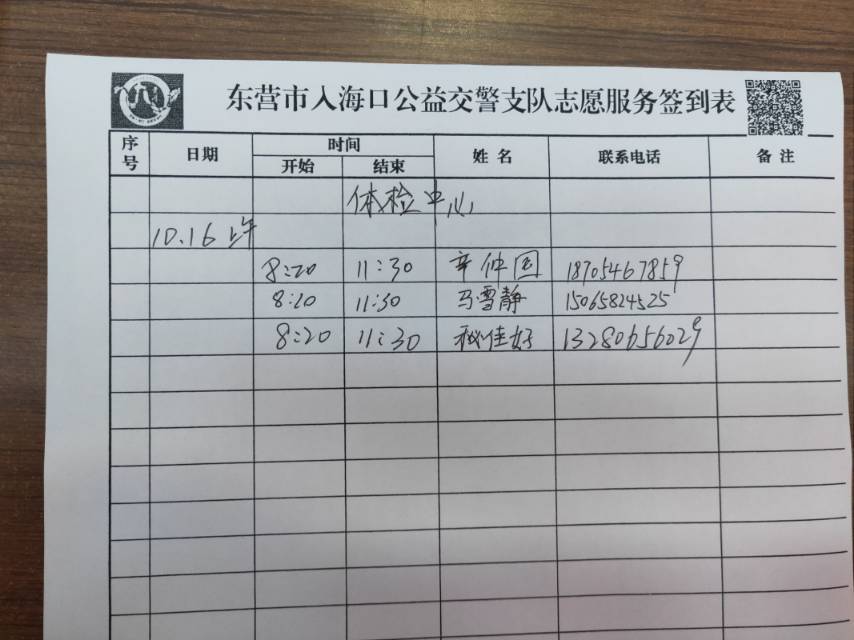 东营市入海口公益交警支队志愿服务签到表
序号 日期 时间 开始 结束 姓名 联系电话 备注
体检中心
10.16 上午
8:20 11:30 辛仲国 18705467859
8:20 11:30 马雪静 15065824525
8:20 11:30 秘佳好 13280656029